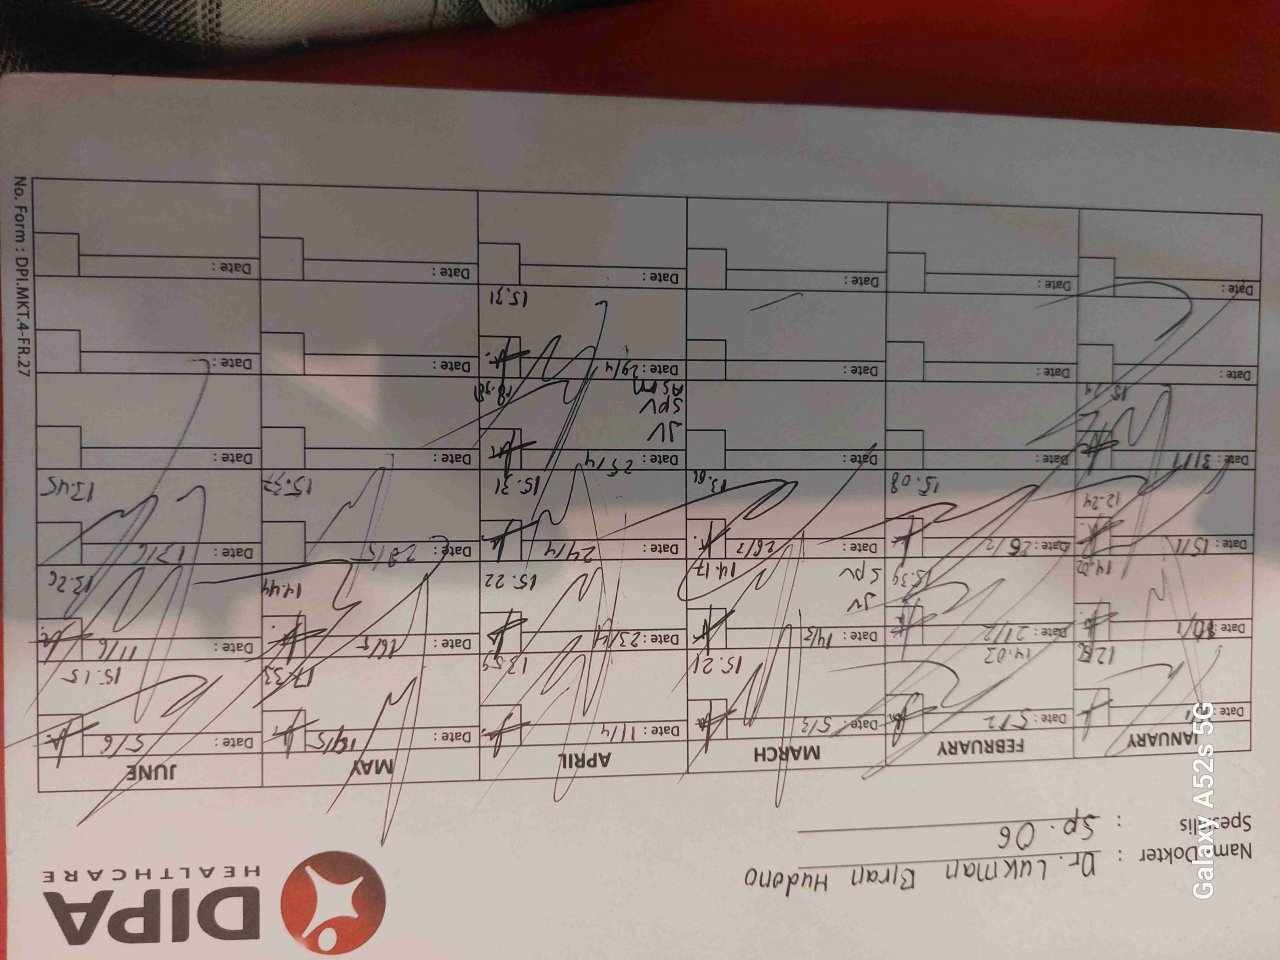 DIPA
HEALTHCARE
Nama Dokter : Dr. Lukman Biran Hudono
Spesialis : Sp. OG
JANUARY FEBRUARY MARCH APRIL MAY JUNE
Date : Date : 5/2 Date : 5/3 Date : 11/4 Date : Date : 5/6
14.02 15.21 13.59 17.33 15.15
Date : Date : 21/2 Date : 14/3 Date : 23/4 Date : 16/5 Date : 11/6
14.02 15.39 JV SPV 14.17 15.22 14.44 13.26
Date : 15/1 Date : 26/2 Date : 26/3 Date : 24/4 Date : Date : 13/6
12.24 15.08 15.31 15.37 13.45
Date : 31/1 Date : Date : Date : 25/4 Date : Date :
JV
SPV
ASM
Date : Date : Date : Date : 29/4 Date : Date :
15.31
Date : Date : Date : Date : Date : Date :
No. Form : DPI.MKT.4-FR.27
Galaxy A52s 5G